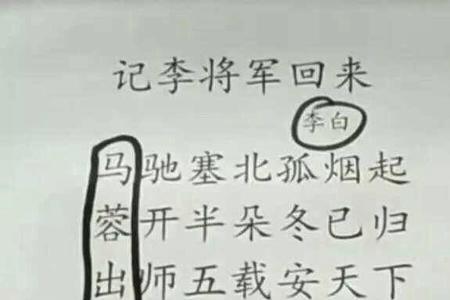 记李将军回来
李白
马驰塞北孤烟起
蓉开半朵冬已归
出师五载安天下